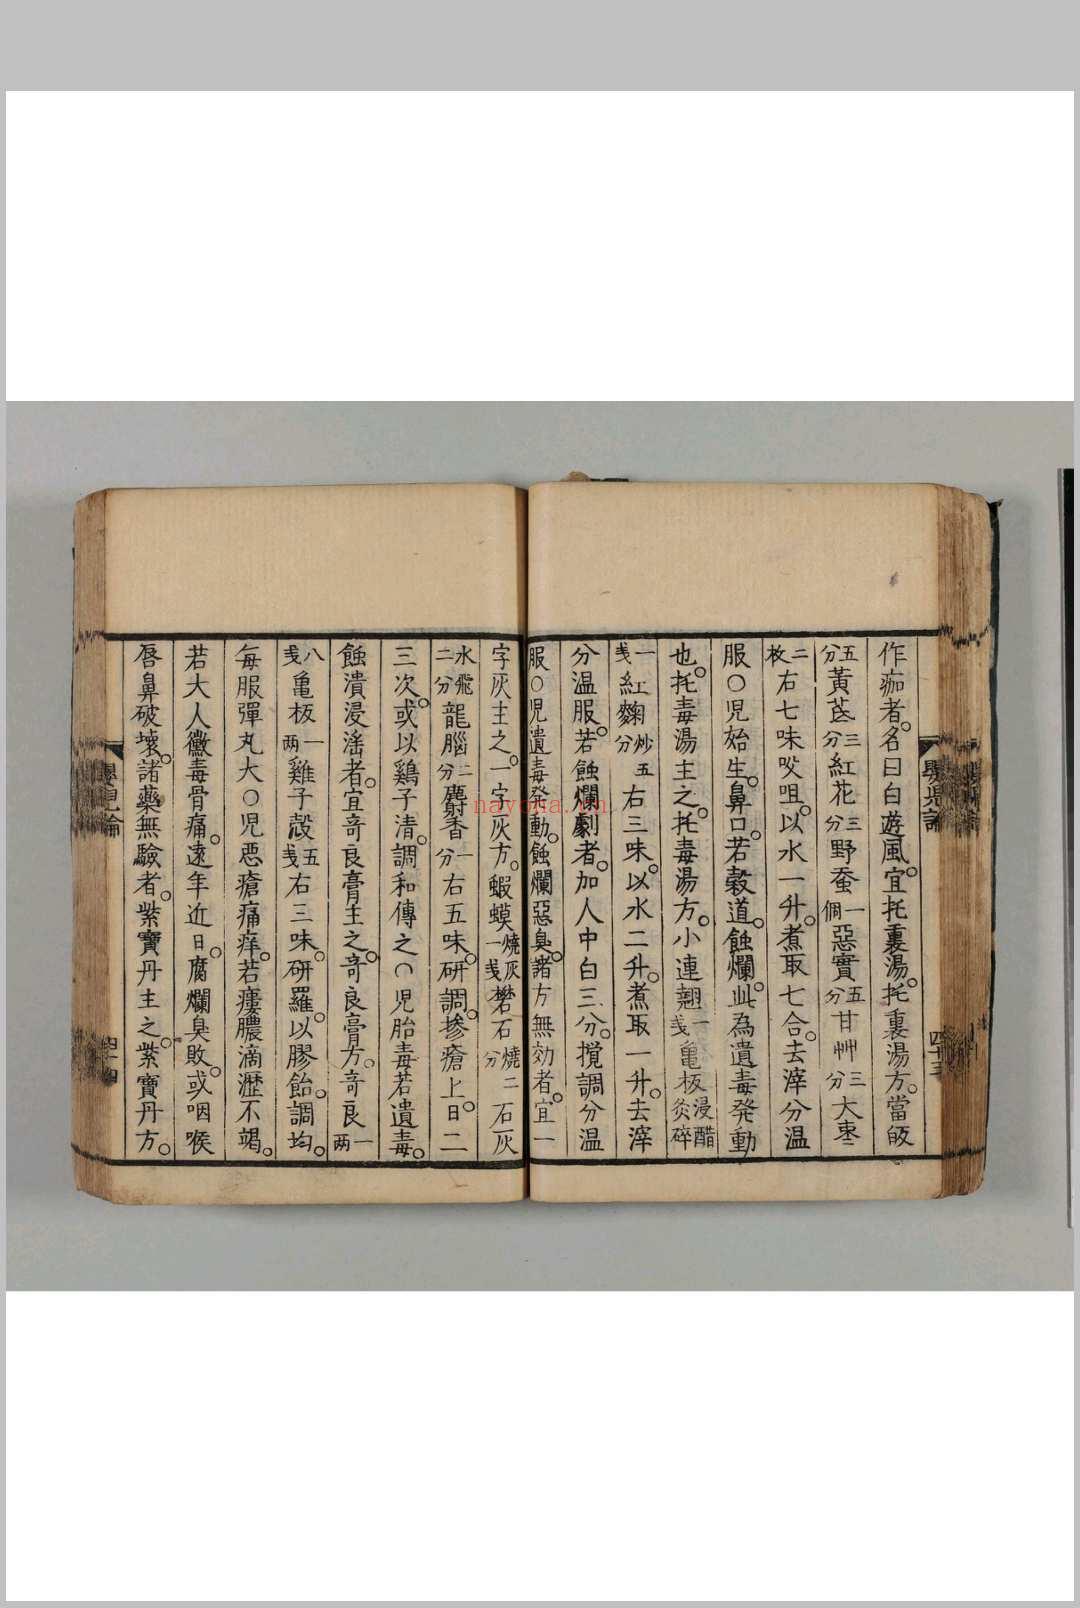 作痂者。名曰白遊風。宜托裏湯。托裏湯方。當皈
五分黃芪三分紅花三分野蚕一個惡實五分甘艸三分大枣
二枚右七味㕮咀。以水一升。煮取七合。去滓分温
服○児始生。鼻口。若穀道。蝕爛。此為遺毒発動
也。托毒湯主之。托毒湯方。小連翹一戔亀板浸醋灸碎
一戔紅麴炒五分右三味。以水二升。煮取一升。去滓
分温服。若蝕爛劇者。加人中白三分。攪調分温
服○児遺毒発動。蝕爛惡臭。諸方無効者。宜一
字灰主之。一字灰方。蝦蟆燒灰一戔礬石燒二分石灰
水飛二分龍腦二分麝香一分右五味。研調。摻瘡上。日二
三次。或以鷄子清。調和傳之○児胎毒若遺毒。
蝕潰浸滛者。宜竒良膏主之。竒良膏方。竒良一两
八戔亀板一两雞子殼五戔右三味。研羅。以膠飴。調均。
每服彈丸大○児悪瘡痛痒。若瘻膿滴瀝不竭。
若大人黴毒骨痛。遠年近日。腐爛臭敗。或咽喉
唇鼻破壞。諸藥無驗者。紫寶丹主之。紫寶丹方。
嬰児論
四十三
四十四
nayona.cn